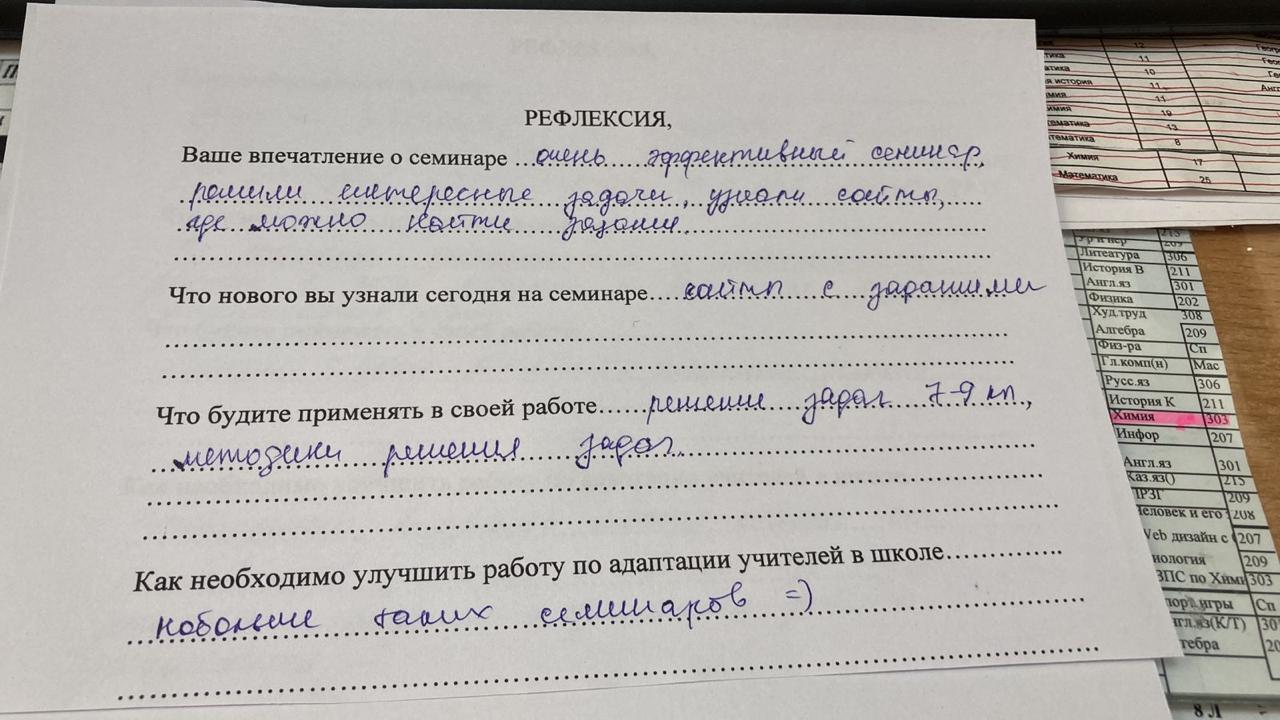 РЕФЛЕКСИЯ,
Ваше впечатление о семинаре ...очень эффективный семинар,
решили интересные задачи, узнали сайты,
где можно найти задания.
Что нового вы узнали сегодня на семинаре.... сайты с заданиями
Что будите применять в своей работе......решение задач 7-9 кл.,
методики решения задач.
Как необходимо улучшить работу по адаптации учителей в школе..............
побольше таких семинаров =)
12
11
10
11
11
19
13
8
Химия 17
Математика 25
Литеатура 306
История В 211
Англ.яз 301
Физика 202
Худ.труд 308
Алгебра 209
Физ-ра Сп
Гл.комп(н) Мас
Русс.яз 306
История К 211
Химия 303
Инфор 207
Англ.яз 301
Каз.яз() 215
209
Человек и его 208
Web дизайн с 207
209
ЗПС по Хими 303
игры Сп
Англ.яз(К/Т)
8 Л